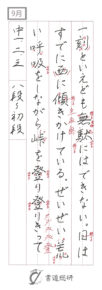 9月
一刻といえども無駄にはできない。日は
すでに西に傾きかけている。ぜいぜい荒
い呼吸をしながら峠を登り登りきって
中一・二・三 八段〜初段
書道総研